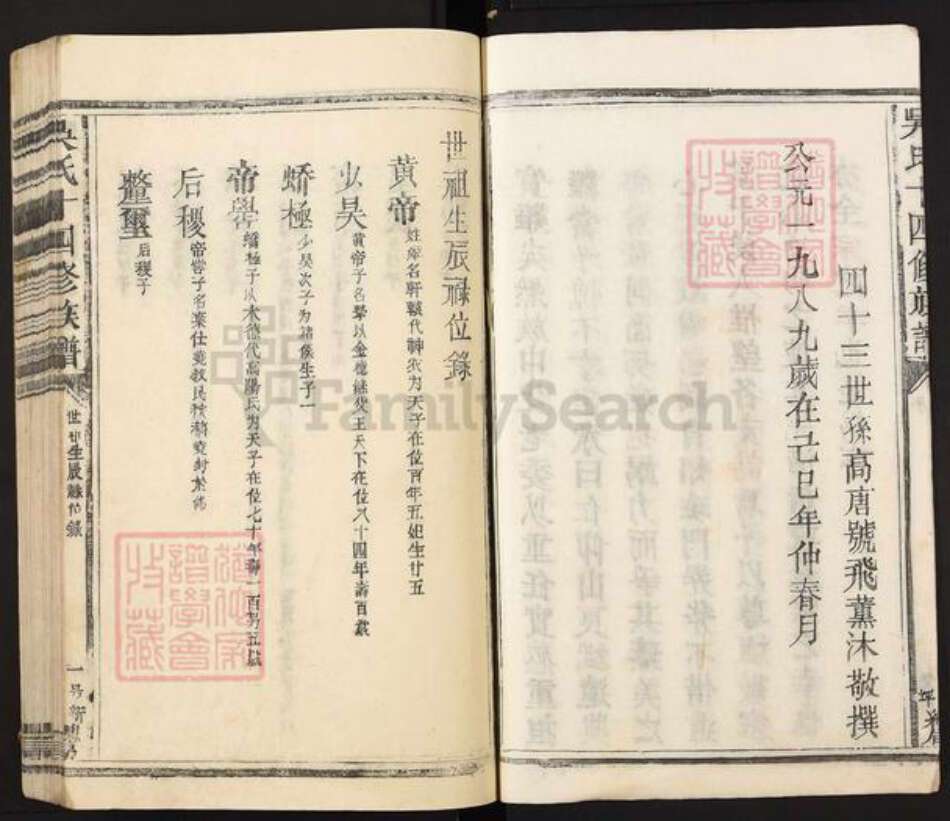 四十三世孫高唐號飛薰沐敬撰
公元一九八九歲在己巳年仲春月
吳氏十四修族譜
世祖生辰祿位錄
黃帝 姓 名軒轅代神農為天子在位百年五妣生廿五
少昊 黃帝子名摯以金德繼父王天下在位八十四年壽百歲
蟜極 少昊次子為諸侯生子一
帝嚳 蟜極子以木德代高陽氏為天子在位七十年壽一百另五歲
后稷 帝嚳子名棄仕堯教民稼穡堯封於邰
𨤲璽 后稷子
吳氏十四修族譜
世祖生辰祿位錄
FamilySearch
譜學會
收藏